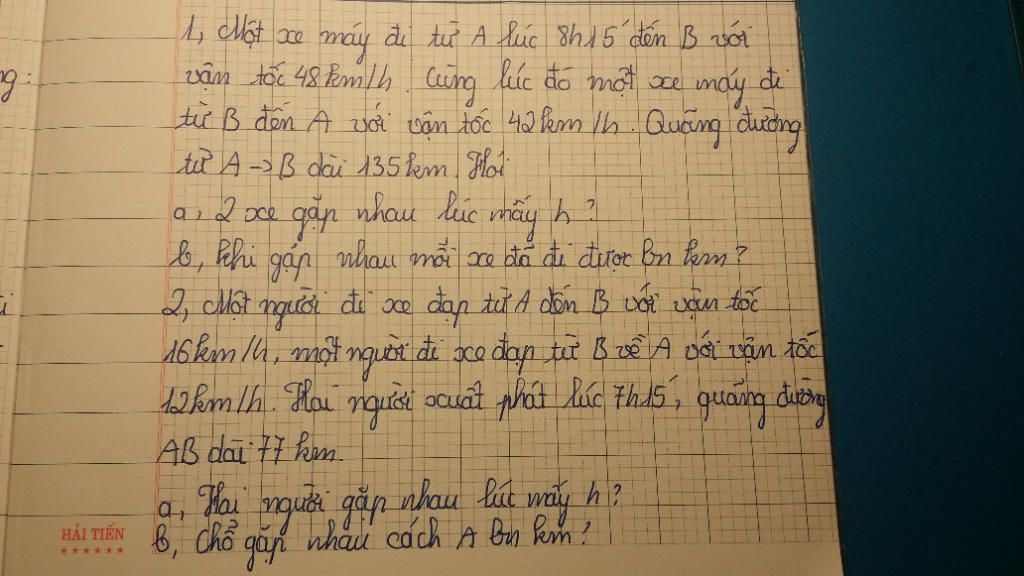 ng:
1, Một xe máy đi từ A lúc 8h15' đến B với
vận tốc 48km/h. Cùng lúc đó một xe máy đi
từ B đến A với vận tốc 42km/h. Quãng đường
từ A → B dài 135km. Hỏi
a, 2 xe gặp nhau lúc mấy h?
b, khi gặp nhau mỗi xe đã đi được bn km?
2, Một người đi xe đạp từ A đến B với vận tốc
16km/h, một người đi xe đạp từ B về A với vận tốc
12km/h. Hai người xuất phát lúc 7h15', quãng đường
AB dài 77 km.
a, Hai người gặp nhau lúc mấy h?
b, chỗ gặp nhau cách A bn km?
HẢI TIẾN